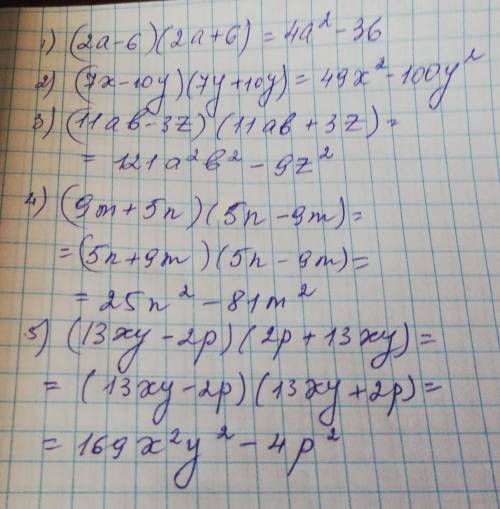 1) (2a-6)(2a+6) = 4a² - 36
2) (7x-10y)(7y+10y) = 49x² - 100y²
3) (11ab-3z)(11ab+3z) =
= 121a²b² - 9z²
4) (9m+5n)(5n-9m) =
= (5n+9m)(5n-9m) =
= 25n² - 81m²
5) (13xy-2p)(2p+13xy) =
= (13xy-2p)(13xy+2p) =
= 169x²y² - 4p²